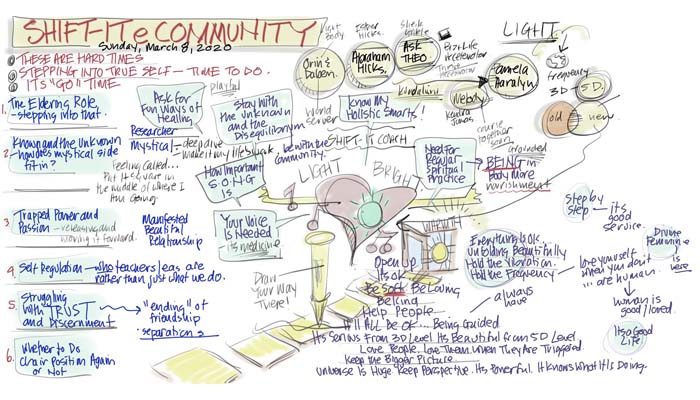 SHIFT-IT e COMMUNITY
Sunday, March 8, 2020
THESE ARE HARD TIMES
STEPPING INTO TRUE SELF - TIME TO DO.
IT'S "GO" TIME
1. The Eldering Role,
- stepping into that.
2. Known and the Unknown
- how does mystical side
fit in?
3. Trapped Power and
Passion - releasing and
moving it forward.
4. Self Regulation - who teachers/leas are
rather than just what we do.
5. Struggling
with TRUST
and Discernment
"ending" of
friendship
separation
6. Whether to Do
Chair Position Again
or Not
playful
Ask for
Fun Ways of
Healing
Researcher
Mystical - deep dive
make it my life's work
Feeling Called...
Put it square in
the middle of where I
Am going.
Manifested
Beautiful
Relationship
Stay with
the Unknown
and the
Disequilibrium
be with the
Community.
How Important
SONG
is
Your Voice
Is Needed
its medicine
Draw
Your Way
There!
Light Body
Orin &
Daben.
World
Server
Esther
Hicks.
Abraham
Hicks.
Sheila
Gillette
ASK
THEO.
Past Life
Regression
Kundalini
Know My
Holistic Smarts!
SHIFT-IT COACH
LIGHT
BRIGHT
Need for
Regular
Spiritual
Practice
LIGHT
Pamela
Aaralyn.
Nebody
Kaudra
Jonas
course
together
soon
Frequency
3D
5D.
old
new
Grounded
BEING in
Body More
nourishment
WARMTH
Open Up
Its ok
Be Soft Be Loving
Be Kind
Help People
Everything Is OK.
Unfolding Beautifully
Hold the Vibration.
Hold the Frequency
always
have
Step by
step - it's
good
service.
love yourself
when you don't
... are human.
Divine
Feminine
is here
woman is
good/loved.
Its a Good
Life
It'll ALL Be OK... Being Guided.
Its Serious From 3D Level Its Beautiful From 5D Level
Love People. Love Them When They Are Triggered.
Keep the Bigger Picture
Universe Is Huge. Keep Perspective. Its Powerful. It Knows What It Is Doing.